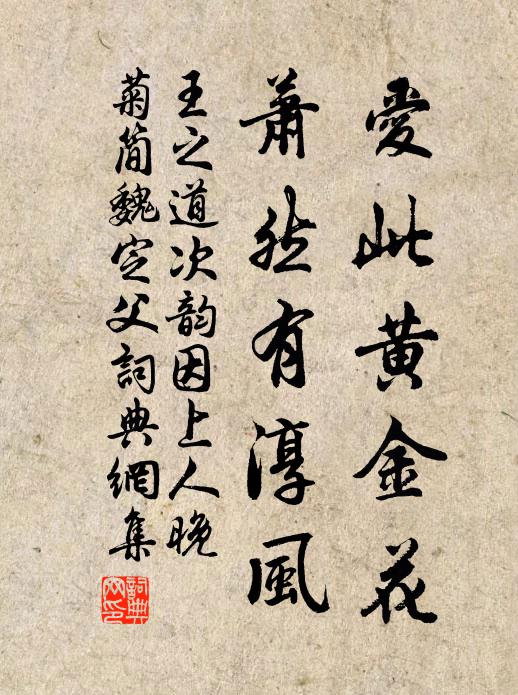 愛此黄金花
蕭然有淳風
王之道次韵因上人晚
菊簡魏定父詞典網集
詞典網印